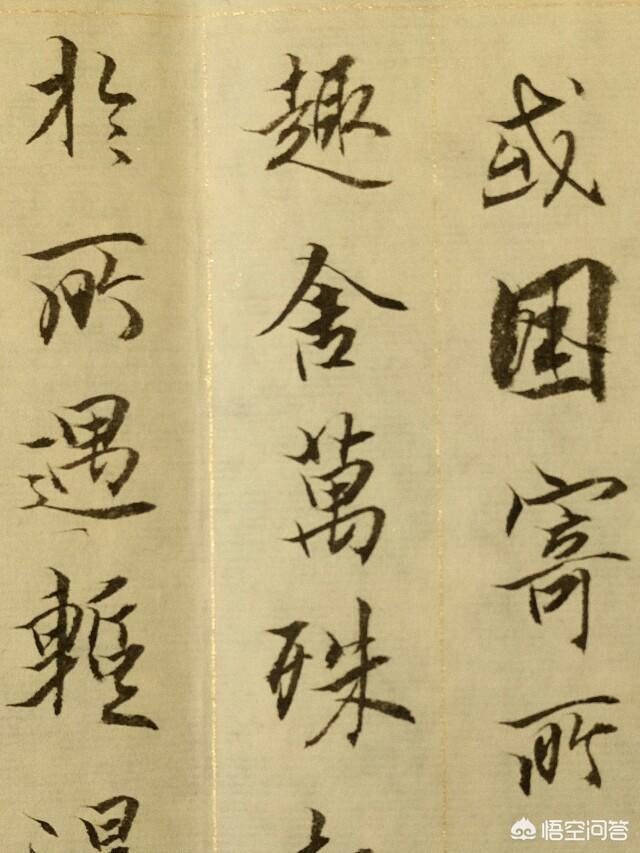 或因寄所
趣舍萬殊
於所遇暫得
悟空问答